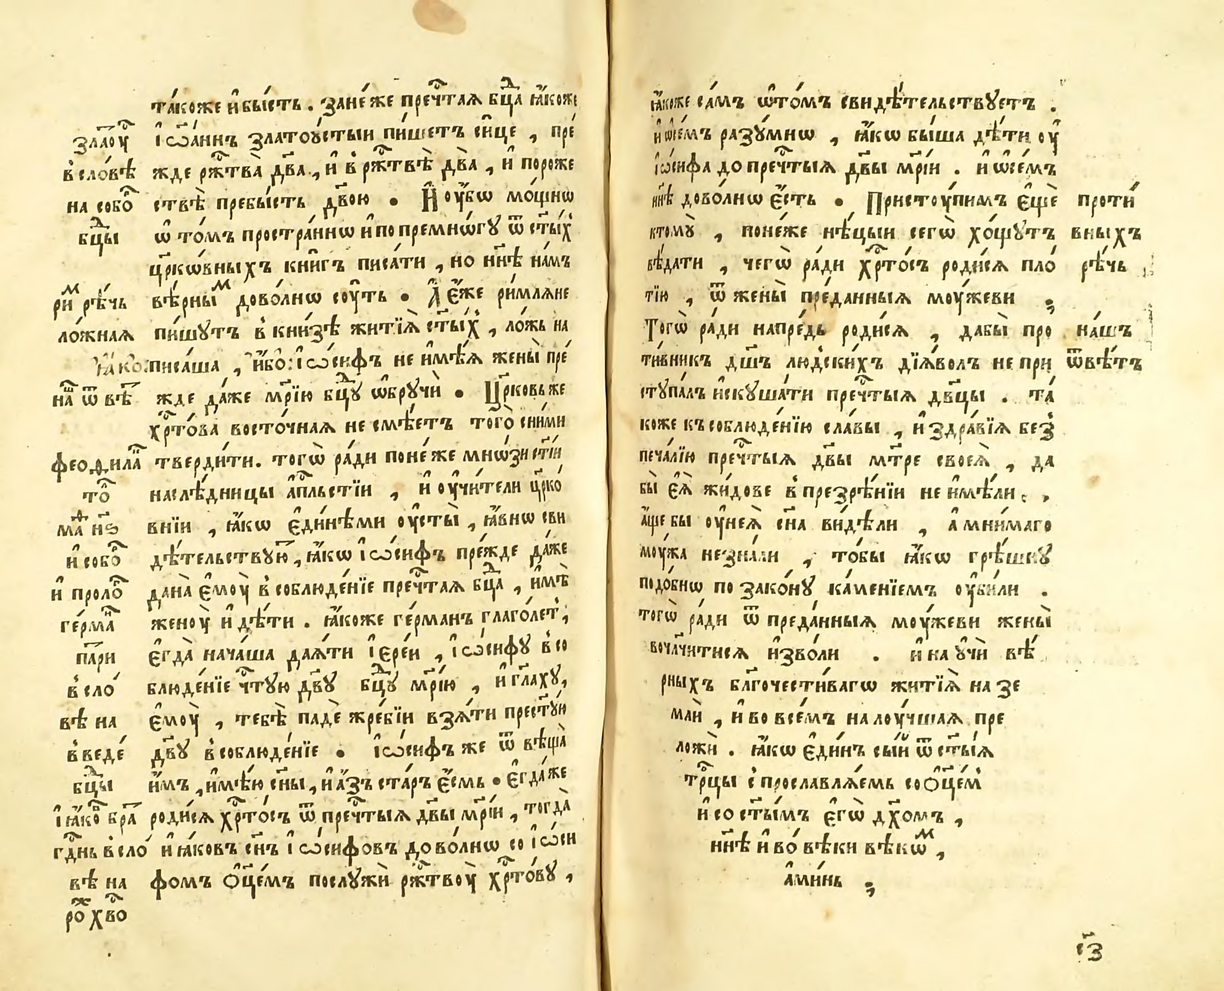 та́коже и҆ бы́сть . зане́же преч҇тая бц҃а ꙗ҆́коже
і҆ѡа́ннъ златоꙋстыи пи́шетъ си́це , пре́
жде рж҇тва̀ дв҃а , и҆ в рж҇твѣ̀ дв҃а , и҆ пороже
ствѣ̀ пребы́сть дв҃ою . И҆ оу҆́бѡ мо́щнѡ
ѡ҆ то́мъ простра́ннѡ и҆ по премно́гꙋ ѿ ст҃ы́х
цр҃ко́вныхъ кни́гъ писа́ти , но нн҃ѣ на́мъ
вѣ́рным дово́лнѡ соу́ть . А҆ є҆́же ри́млѧне
пи́шутъ в кни́зѣ житїѧ̀ ст҃ы́х , ло́жь на
писаша , и҆́бо : і҆ѡ́сифъ не и҆мѣ́ѧ жены̀ пре́
жде да́же мр҃і́ю бц҃ꙋ ѡ҆брꙋчѝ . Цр҃ковь же
хр҇то́ва восто́чная не смѣ́етъ того̀ сни́ми
тверди́ти . тогѡ̀ ра́ди поне́же мно́зи ст҃і́и
наслѣ́дницы а҆пⷭ҇льстїи , и҆ оу҆чи́тели цр҃ко́
внїи , ꙗ҆́кѡ є҆ди́нѣми оу҆сты̀ , ꙗ҆́внѡ сви
дѣ́тельствую҇т , ꙗ҆́кѡ і҆ѡ́сифъ пре́жде да́же
дана̀ є҆моу̀ в соблюде́нїе преч҇тая бц҃а , и҆мѣ̀
женоу̀ и҆ дѣ́ти . ꙗ҆́коже ге́рманъ глаго́лет ,
є҆гда̀ нача́ша даѧ́ти і҆ере́и , і҆ѡ́сифꙋ в со
блюде́нїе ч҇тую дв҃ꙋ бц҃ꙋ мр҃і́ю , и҆ гл҃а́хꙋ ,
є҆моу̀ , тебѣ̀ падѐ жре́бїи взѧ́ти прест҃ꙋю
дв҃ꙋ в соблюде́нїе . і҆ѡ́сифъ же ѿвѣща̀
и҆́мъ , и҆мѣ́ю сн҃ы , и҆ а҆́зъ ста́ръ є҆́смь . є҆гда́же
роди́сѧ хр҇то́съ ѿ преч҇тыѧ дв҃ы мр҃і́и , тогда̀
и҆ ꙗ҆́ковъ сн҃ъ і҆ѡ́сифовъ дово́лнѡ со і҆ѡ́си
фомъ ѻ҆ц҃е́мъ послужѝ рж҇твоу̀ хр҇то́вꙋ ,
злато҇у
в сло́вѣ
на собо҇
бц҃ы
рим рѣ́чь
ло́жная
феофила҇
то҇
и҆ собо҇
и҆ проло҇
ге́рма҇
па́ри
в сло́
вѣ на
в веде́
бц҃ы
і҆ꙗ́ко҇ бра҇
гд҃нь в сло́
вѣ на
ро҇ хв҇о
ꙗ҆́коже са́мъ ѡ҆ то́мъ свидѣ́тельствꙋетъ .
и҆ ѡ҆ се́мъ разꙋ́мнѡ , ꙗ҆́кѡ бы́ша дѣ́ти оу҆
і҆ѡ́сифа до преч҇тыѧ дв҃ы мр҃і́и . и҆ ѡ҆ се́мъ
нн҃ѣ дово́лнѡ є҆́сть . Пристоу́пимъ є҆щѐ
ктомꙋ̀ , поне́же нѣ́цыи сегѡ̀ хо́щутъ
вѣ́дати , чегѡ̀ ра́ди хр҇то́съ роди́сѧ пло́
тїю , ѿ жены̀ пре́данныѧ моу́жеви ;
Тогѡ̀ ра́ди напре́дь роди́сѧ , дабы̀ про
ти́вникъ дш҃ъ людски́хъ дїѧ́волъ не при
ступа́лъ и҆скуша́ти преч҇тыѧ дв҃цы . та́
коже къ соблюде́нїю сла́вы , и҆ здра́вїѧ без
печа́лїю преч҇тыѧ дв҃ы мт҃ре своеѧ̀ , да
бы є҆ѧ̀ жи́дове в презрѣ́нїи не и҆мѣ́ли ,
а҆́ще бы оу҆ неѧ̀ сн҃а ви́дѣли , а҆ мни́маго
моу́жа не зна́ли , то́бы ꙗ҆́кѡ грѣ́шнꙋ
подо́бнѡ по зако́нꙋ ка́менїемъ оу҆би́ли .
тогѡ̀ ра́ди ѿ преда́нныѧ моу́жеви жены̀
вочл҃чи́тисѧ и҆зво́ли . и҆ наꙋчѝ вѣ́
рныхъ бл҃гочести́вагѡ житїѧ̀ на зе
млѝ , и҆ во все́мъ на лоу́чшаѧ пре
ложѝ . ꙗ҆́кѡ є҆ди́нъ сы́й ѿ ст҃ы́ѧ
тр҇о́цы спрославлѧ́емь со ѻ҆ц҃е́м
и҆ со ст҃ы́мъ є҆гѡ̀ дх҃омъ ,
нн҃ѣ и҆ во вѣ́ки вѣкѡ́м ,
а҆ми́нь ;
проти́
вныхъ
рѣ́чь
на́шъ
ѿвѣ́тъ
с҃з